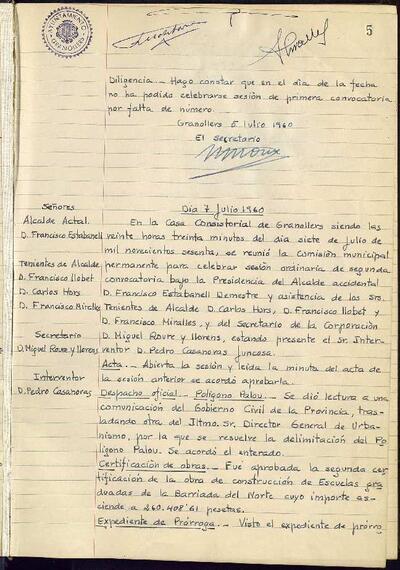 AYUNTAMIENTO
GRANOLLERS
5
Diligencia.- Hago constar que en el día de la fecha
no ha podido celebrarse sesión de primera convocatoria
por falta de número.
Granollers 5 Julio 1960
El Secretario
Señores
Alcalde Actal.
D. Francisco Estabanell
Tenientes de Alcalde
D. Francisco Llobet
D. Carlos Hors
D. Francisco Miralles
Secretario
D. Miguel Roure y Llorens
Interventor
D. Pedro Casanovas
Día 7 Julio 1960
En la Casa Consistorial de Granollers siendo las
veinte horas treinta minutos del día siete de Julio de
mil novecientos sesenta, se reunió la Comisión municipal
permanente para celebrar sesión ordinaria de segunda
convocatoria bajo la Presidencia del Alcalde accidental
D. Francisco Estabanell Demestre y asistencia de los Srs.
Tenientes de Alcalde D. Carlos Hors, D. Francisco Llobet y
D. Francisco Miralles, y del Secretario de la Corporación
D. Miguel Roure y Llorens, estando presente el Sr. Inter-
ventor D. Pedro Casanovas Juncosa.
Acta.- Abierta la sesión y leída la minuta del acta de
la sesión anterior se acordó aprobarla.
Despacho oficial.- Polígono Palou.- Se dió lectura a una
comunicación del Gobierno Civil de la Provincia, tras-
ladando otra del Iltmo. Sr. Director General de Urba-
nismo, por la que se resuelve la delimitación del Po-
lígono Palou. Se acordó el enterado.
Certificación de obras.- Fué aprobada la segunda cer-
tificación de la obra de construcción de Escuelas gra-
duadas de la Barriada del Norte cuyo importe as-
ciende a 260.408'61 pesetas.
Expediente de Prórroga.- Visto el expediente de prórro-